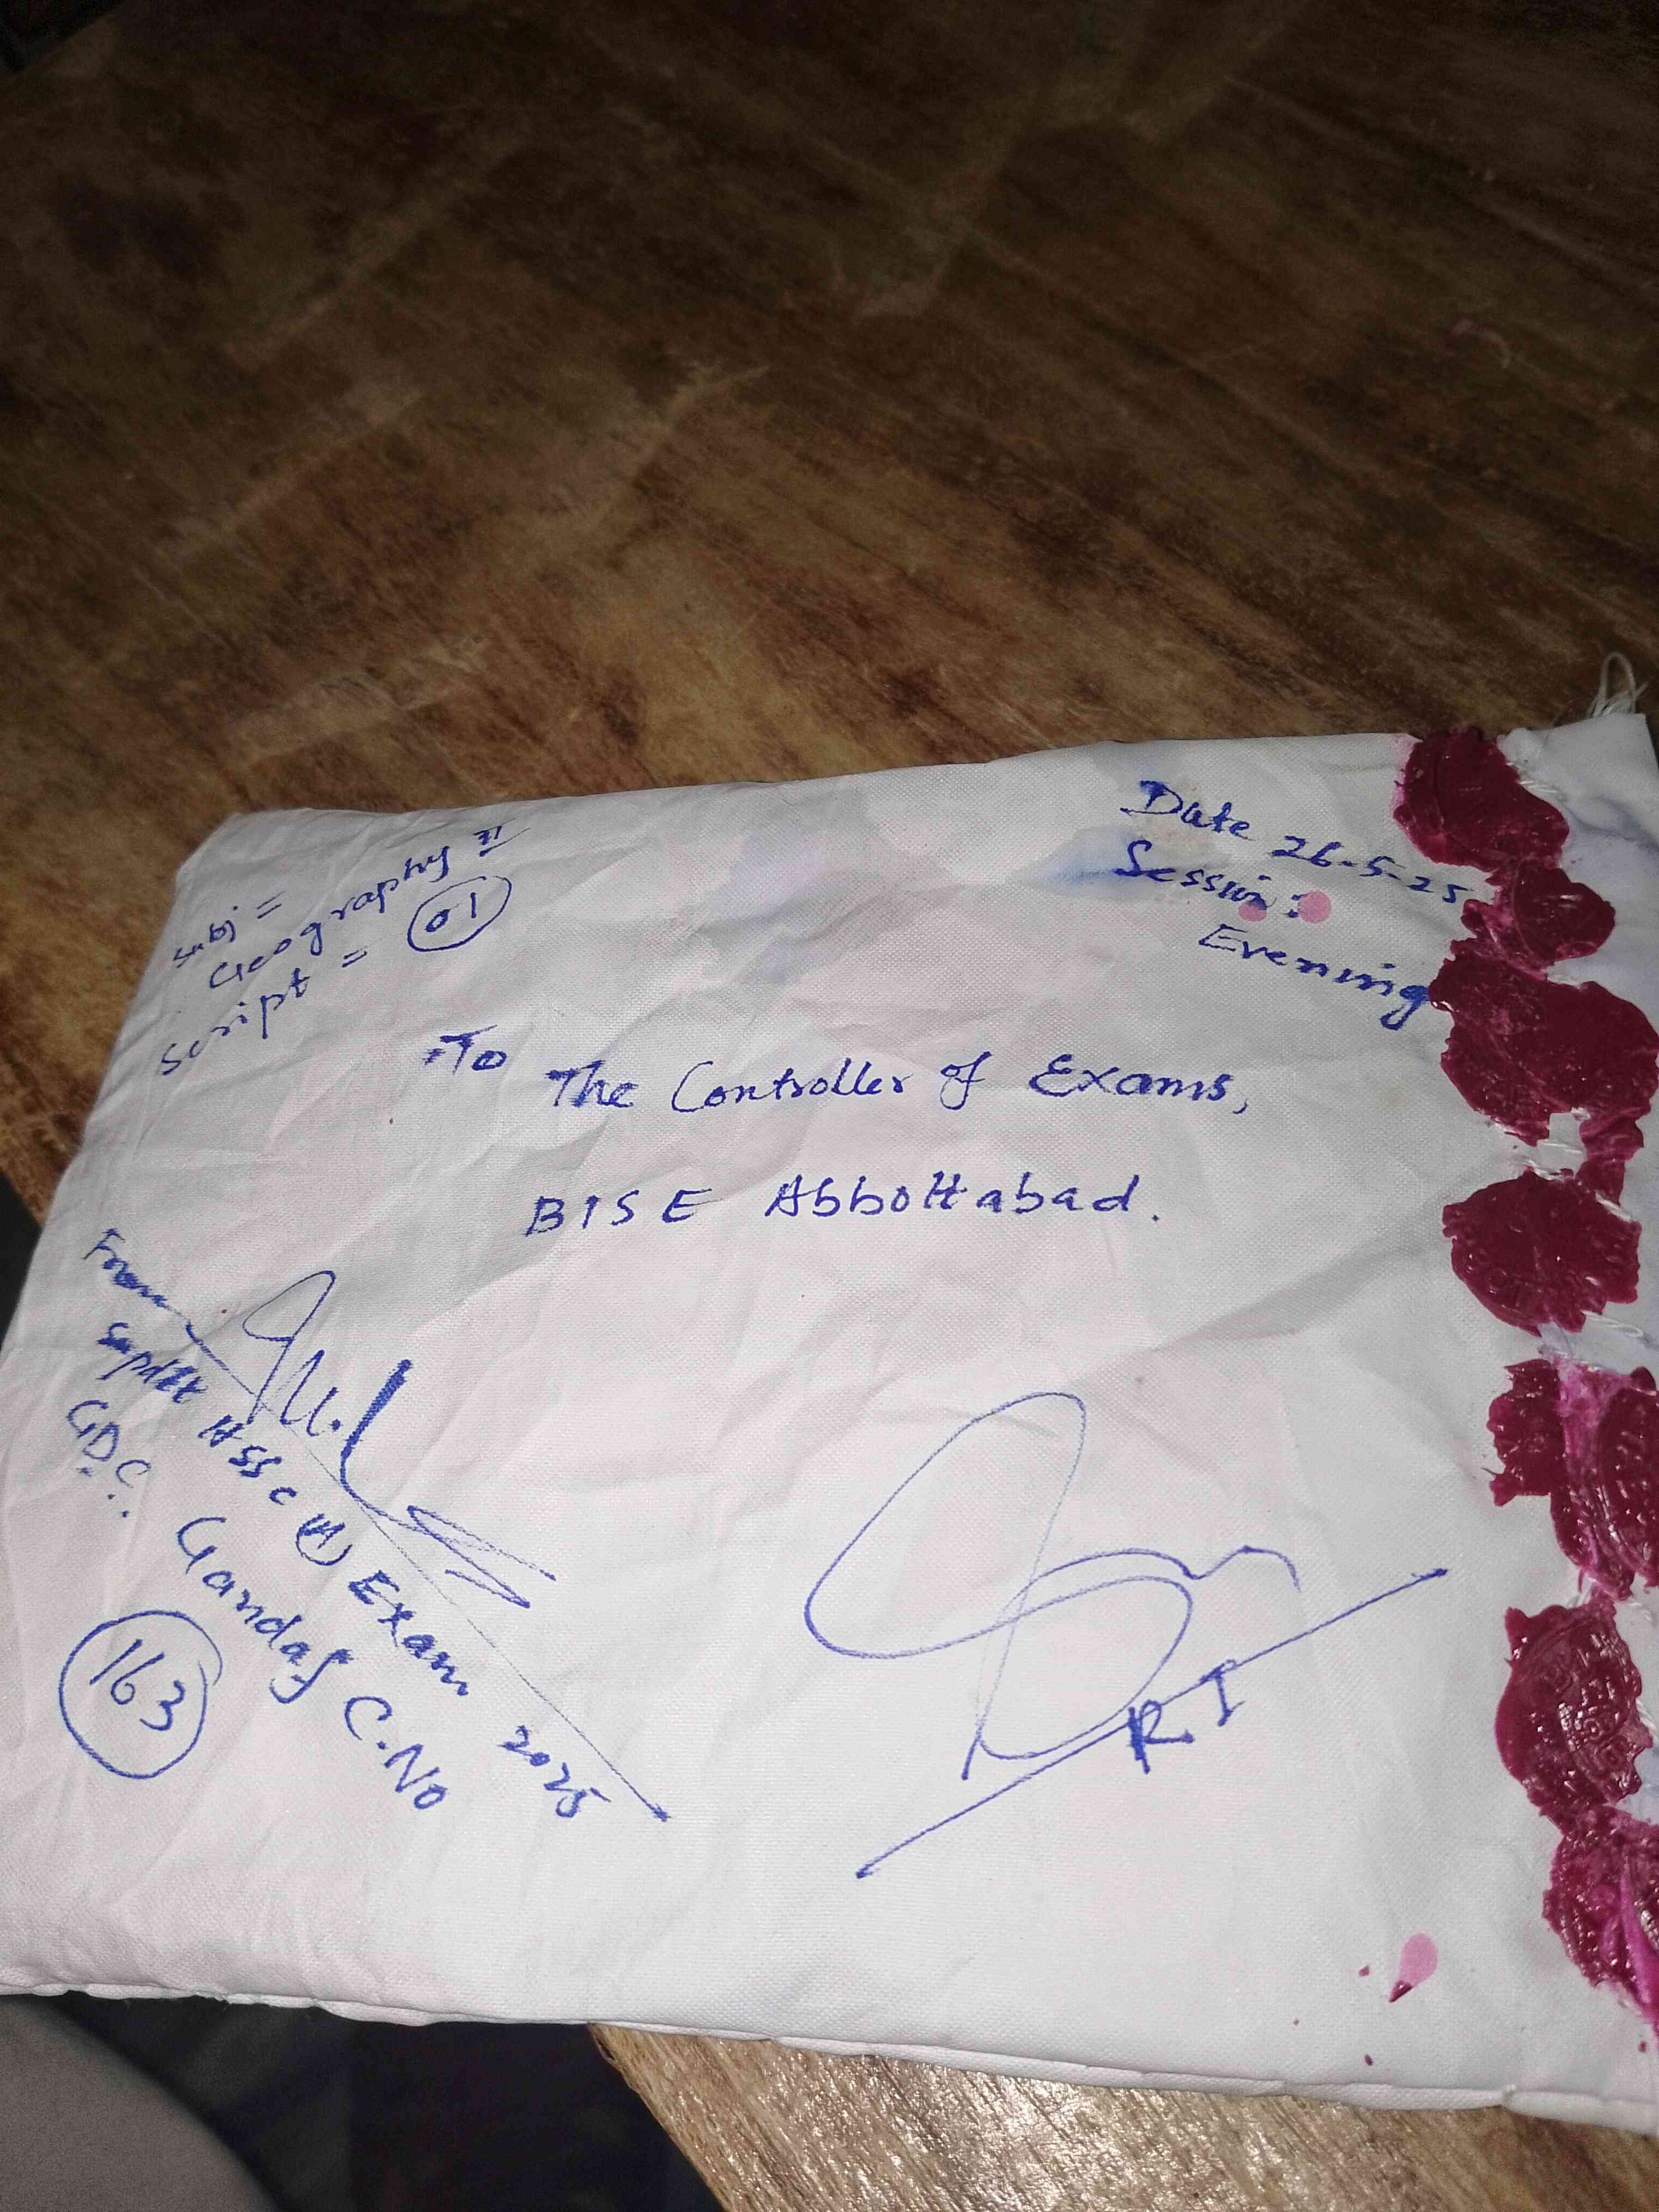 Subj =
Geography II
Script = 01
Date 26-5-25
Session:
Evening
To
The Controller of Exams,
BISE Abbottabad.
From
Supdtt HSSC (A) Exam 2025
GDC. Gandaf C.No
163
R.I